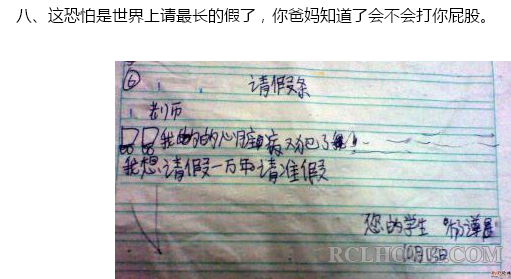 八、这恐怕是世界上请最长的假了，你爸妈知道了会不会打你屁股。
⑥ 请假条
老师
我的心脏病又犯了
我想请假一万年请准假
您的学生
10月13日
RCLHOME.COM